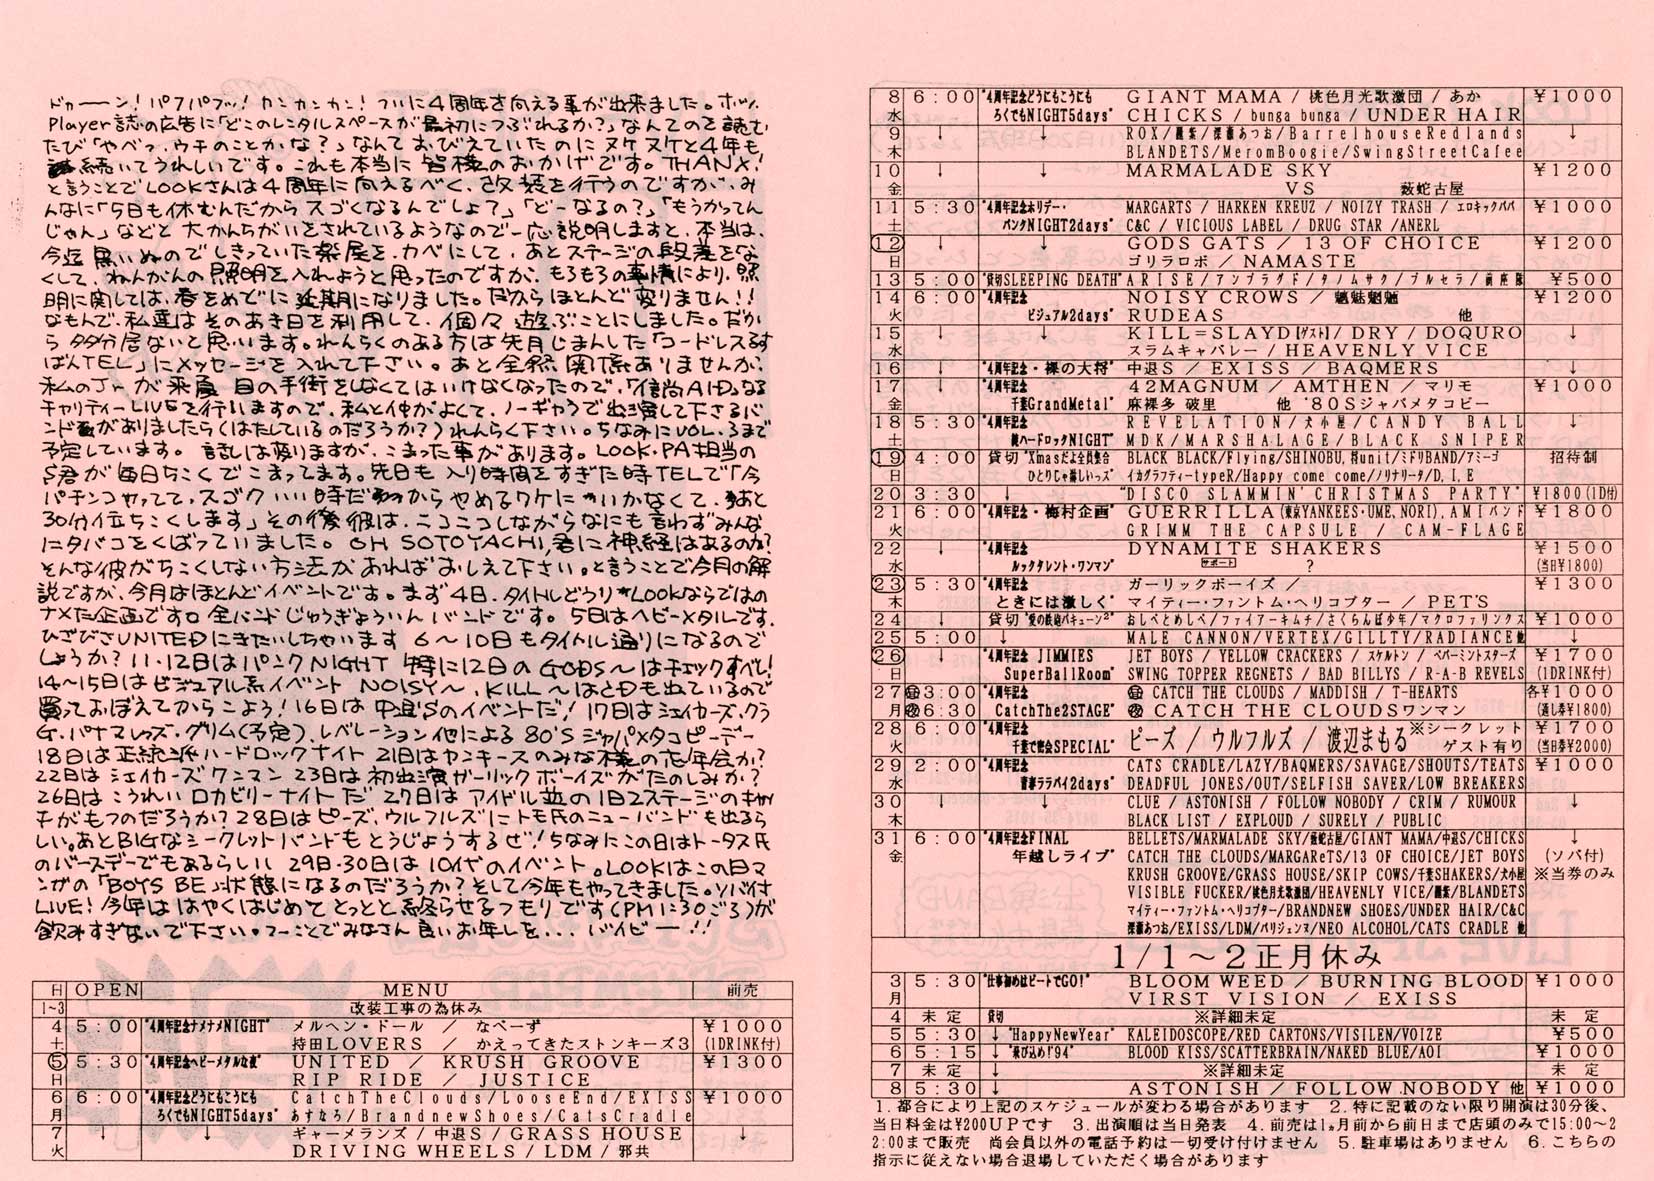 ドゥーーン!パフパフッ!カンカンカン!ついに4周年を向える事が出来ました。ホッ。
Player誌の広告に「どこのレンタルスペースが最初につぶれるか?」なんてのを読む
たび「やべっ、ウチのことかな?」なんておびえていたのにヌケヌケと4年も
続いてうれしいです。これも本当に皆様のおかげです。THANX!
と言うことでLOOKさんは4周年に向えるべく、改装を行うのですが、み
んなに「5日も休むんだからスゴくなるんでしょ?」「どーなるの?」「もうかってん
じゃん」などと大かんちがいをされているようなので一応説明しますと、本当は、
今迄黒いぬのでしきっていた楽屋を、カベにして、あとステージの段差をな
くして、ねんがんの照明を入れようと思ったのですが、もろもろの事情により、照
明に関しては、春をめどに延期になりました。だからほとんど変りません!!
なもんで、私達はそのあき日を利用して、個々遊ぶことにしました。だか
ら多分居ないと思います。れんらくのある方は先月じまんした「コードレスるす
ばんTEL」にメッセージを入れて下さい。あと全然関係ありませんが、
私のJr.が来月目の手術をしなくてはいけなくなったので、「信尚AID」なる
チャリティーLIVEを行いますので、私と仲がよくて、ノーギャラで出演して下さるバ
ンドがありましたら(はたしているのだろうか?)れんらく下さい。ちなみにVOL.3まで
予定しています。話しは変りますが、こまった事があります。LOOK・PA担当の
S君が毎日ちこくでこまってます。先日も入り時間をすぎた時TELで「今
パチンコヤってて、スゴクいい時だからやめるワケにいかなくて、あと
30分位ちこくします」その後彼は、ニコニコしながらなにも言わずみんな
にタバコをくばっていました。OH SOTOYACHI君に神経はあるのか?
そんな彼がちこくしない方法があればおしえて下さい。と言うことで今月の解
説ですが、今月はほとんどイベントです。まず4日、タイトルどうりLOOKならではの
ナメた企画です。全バンドじゅうぎょういんバンドです。5日はヘビーメタルです。
ひさびさUNITEDにきたいしちゃいます 6〜10日もタイトル通りになるので
しょうか?11・12日はパンクNIGHT 特に12日のGODS〜はチェックすべし!
14〜15日はビジュアル系イベント NOISY〜、KILL〜はとCDも出ているので
買っておぼえてからこよう!16日は中退'Sのイベントだ!17日はシェイカーズ、クラ
G・パナマレッズ・グリム(予定)、レベレーション他による80'Sジャパメタコピーデー
18日は正統派ハードロックナイト 21日はヤンキースのみな様の忘年会か?
22日はシェイカーズワンマン 23日は初出演ガーリックボーイズがたのしみか?
26日はこうれいロカビリーナイトだ 27日はアイドル並の1日2ステージのキャッ
チがもつのだろうか?28日はピーズ、ウルフルズにトモ氏のニューバンドも出るら
しい。あとBIGなシークレットバンドもとうじょうするぜ!ちなみにこの日はトータス氏
のバースデーでもあるらしい 29日・30日は10代のイベント。LOOKはこの日マ
ンガの「BOYS BE」状態になるのだろうか?そして今年もやってきました。ソバ付
LIVE!今年ははやくはじめてとっとと終らせるつもりです(PM1:30ごろ)が
飲みすぎないで下さい。てーことでみなさん良いお年しを...バイビー!!
日 OPEN MENU 前売
1~3 改装工事の為休み
4 5:00 "4周年記念ナメナメNIGHT" メルヘン・ドール / なべーず ¥1000
土 持田LOVERS / かえってきたストンキーズ3 (1DRINK付)
5 5:30 "4周年記念ヘビーメタルな夜" UNITED / KRUSH GROOVE ¥1300
日 RIP RIDE / JUSTICE
6 6:00 "4周年記念どうにもこうにも CatchTheClouds/LooseEnd/EXISS ¥1000
月 ろくでもNIGHT5days" あすなろ/BrandnewShoes/CatsCradle
7 ↓ ↓ ギャーメランズ/中退S/GRASS HOUSE ↓
火 DRIVING WHEELS/LDM/邪共
8 6:00 "4周年記念どうにもこうにも GIANT MAMA / 桃色月光歌激団 / あか ¥1000
水 ろくでもNIGHT5days" CHICKS / bunga bunga / UNDER HAIR
9 ↓ ↓ ROX/羅紫/深瀬あつお/BarrelhouseRedlands ↓
木 BLANDETS/MeromBoogie/SwingStreetCafee
10 ↓ ↓ MARMALADE SKY ¥1200
金 VS 薮蛇古屋
11 5:30 "4周年記念ホリデー・ MARGARTS / HARKEN KREUZ / NOIZY TRASH / エロキックパパ ¥1000
土 パンクNIGHT2days" C&C / VICIOUS LABEL / DRUG STAR /ANERL
12 ↓ ↓ GODS GATS / 13 OF CHOICE ¥1200
日 ゴリラロボ / NAMASTE
13 5:00 "貸切SLEEPING DEATH" ARISE/アンプラグド/タノムサク/ブルセラ/前座隊 ¥500
14 6:00 "4周年記念 NOISY CROWS / 魑魅魍魎 ¥1200
火 ビジュアル2days" RUDEAS 他
15 ↓ ↓ KILL=SLAYD[ゲスト] / DRY / DOQURO ↓
水 スラムキャバレー / HEAVENLY VICE
16 ↓ "4周年記念・裸の大将" 中退S / EXISS / BAQMERS ↓
17 ↓ "4周年記念 42MAGNUM / AMTHEN / マリモ ¥1000
金 千葉GrandMetal" 麻裸多 破里 他 '80Sジャパメタコピー
18 5:30 "4周年記念 REVELATION/犬小屋/CANDY BALL ↓
土 純ハードロックNIGHT" MDK/MARSHALAGE/BLACK SNIPER
19 4:00 貸切"Xmasだよ全員集合 BLACK BLACK/Flying/SHINOBU,將unit/ミドリBAND/アミーゴ 招待制
日 ひとりじゃ淋しいっズ" イカグラフティーtypeR/Happy come come/ノリナリータ/D,I,E
20 3:30 ↓ "DISCO SLAMMIN' CHRISTMAS PARTY" ¥1800(1D付)
21 6:00 "4周年記念・梅村企画" GUERRILLA(東京YANKEES・UME,NORI),AMIバンド ¥1800
火 GRIMM THE CAPSULE / CAM-FLAGE
22 ↓ "4周年記念 DYNAMITE SHAKERS ¥1500
水 ルックタレント・ワンマン" サポート ? (当日¥1800)
23 5:30 "4周年記念 ガーリックボーイズ / ¥1300
木 ときには激しく" マイティー・ファントム・ヘリコプター / PET'S
24 ↓ 貸切"愛の鉄砲バキューン2" おしべとめしべ/ファイアーキムチ/さくらんぼ少年/マクロファリンクス ¥1000
25 5:00 ↓ MALE CANNON/VERTEX/GILLTY/RADIANCE他 ↓
26 ↓ "4周年記念 JIMMIES JET BOYS / YELLOW CRACKERS / スケルトン / ペパーミントスターズ ¥1700
日 SuperBallRoom" SWING TOPPER REGNETS / BAD BILLYS / R-A-B REVELS (1DRINK付)
27 昼3:00 "4周年記念 昼 CATCH THE CLOUDS / MADDISH / T-HEARTS 各¥1000
月 夜6:30 CatchThe2STAGE" 夜 CATCH THE CLOUDSワンマン (通し券¥1800)
28 6:00 "4周年記念 ピーズ / ウルフルズ / 渡辺まもる ※シークレット ¥1700
火 千葉で密会SPECIAL" ゲスト有り (当日券¥2000)
29 2:00 "4周年記念 CATS CRADLE/LAZY/BAQMERS/SAVAGE/SHOUTS/TEATS ¥1000
水 青春ララバイ2days" DEADFUL JONES/OUT/SELFISH SAVER/LOW BREAKERS
30 ↓ ↓ CLUE / ASTONISH / FOLLOW NOBODY / CRIM / RUMOUR ↓
木 BLACK LIST / EXPLOUD / SURELY / PUBLIC
31 6:00 "4周年記念FINAL BELLETS/MARMALADE SKY/薮蛇古屋/GIANT MAMA/中退S/CHICKS ↓
金 年越しライブ" CATCH THE CLOUDS/MARGAReTS/13 OF CHOICE/JET BOYS (ソバ付)
KRUSH GROOVE/GRASS HOUSE/SKIP COWS/千葉SHAKERS/犬小屋 ※当券のみ
VISIBLE FUCKER/桃色月光歌激団/HEAVENLY VICE/羅紫/BLANDETS
マイティー・ファントム・ヘリコプター/BRANDNEW SHOES/UNDER HAIR/C&C
深瀬あつお/EXISS/LDM/パリジェンヌ/NEO ALCOHOL/CATS CRADLE 他
1/1〜2正月休み
3 5:30 "仕事初めはビートでGO!" BLOOM WEED / BURNING BLOOD ¥1000
月 VIRST VISION / EXISS
4 未定 貸切 ※詳細未定 未定
5 5:30 ↓ "HappyNewYear" KALEIDOSCOPE/RED CARTONS/VISILEN/VOIZE ¥500
6 5:15 ↓ "飛び込め!'94" BLOOD KISS/SCATTERBRAIN/NAKED BLUE/AOI ¥1000
7 未定 ↓ ※詳細未定 未定
8 5:30 ↓ ASTONISH / FOLLOW NOBODY 他 ¥1000
1.都合により上記のスケジュールが変わる場合があります 2.特に記載のない限り開演は30分後、
当日料金は¥200UPです 3.出演順は当日発表 4.前売は1ヵ月前から前日まで店頭のみで15:00〜2
2:00まで販売 尚会員以外の電話予約は一切受け付けません 5.駐車場はありません 6.こちらの
指示に従えない場合退場していただく場合があります